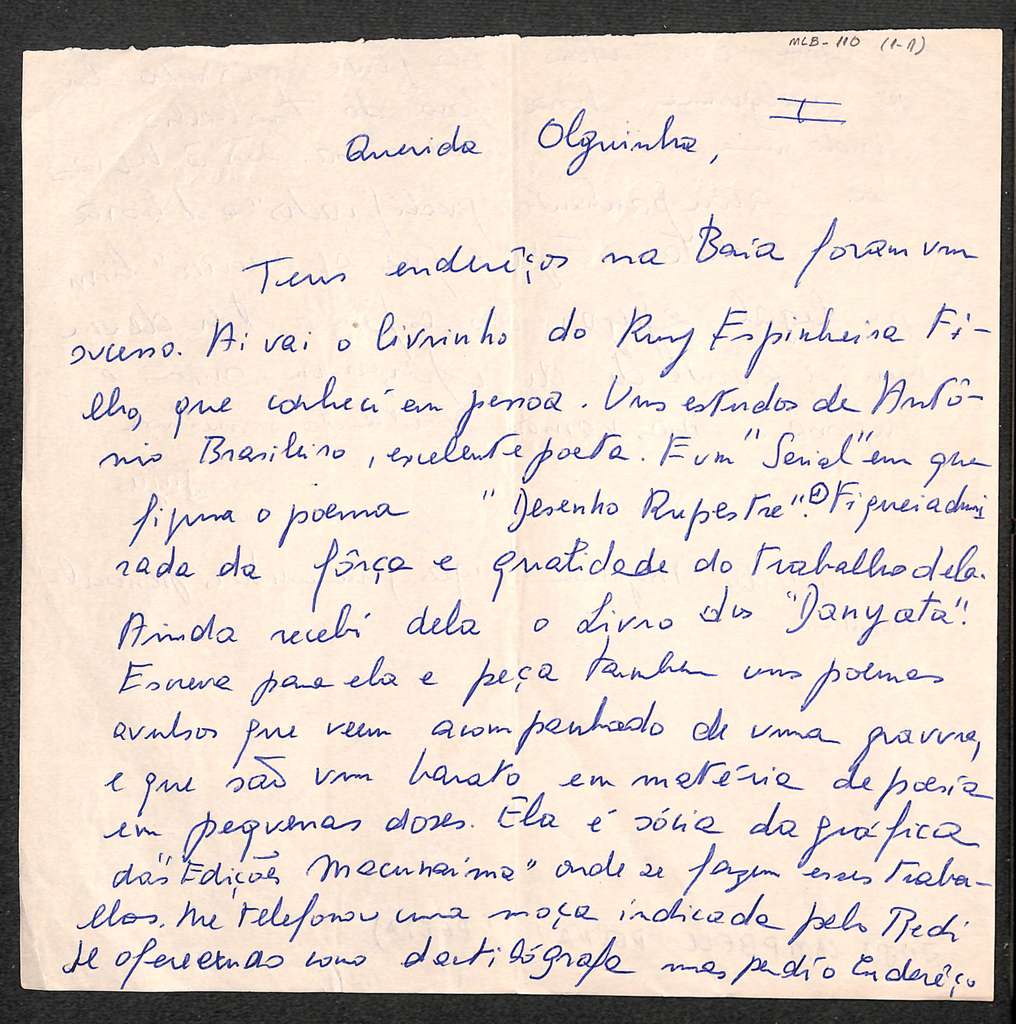 MLB-110 (1-1)
I
Querida Olguinha,
Teus enderêços na Baia foram um
sucesso. Ai vai o livrinho do Ruy Espinheira Fi-
lho, que conheci em pessoa. Uns estudos de Antô-
nio Brasileiro, excelente poeta. E um "Serial" em que
figura o poema "Desenho Rupestre". Fiquei admi
rada da fôrça e qualidade do trabalho dela.
Ainda recebi dela o Livro dos "Danyata".
Escreva para ela e peça tambem uns poemas
avulsos que veem acompanhado de uma gravura,
e que são um barato em matéria de poesia
em pequenas doses. Ela é sócia da gráfica
das "Edições Macunaíma" onde se fazem esses traba-
lhos. Me telefonou uma moça indicada pelo
se oferecendo como datilógrafa mas perdi o Enderêço